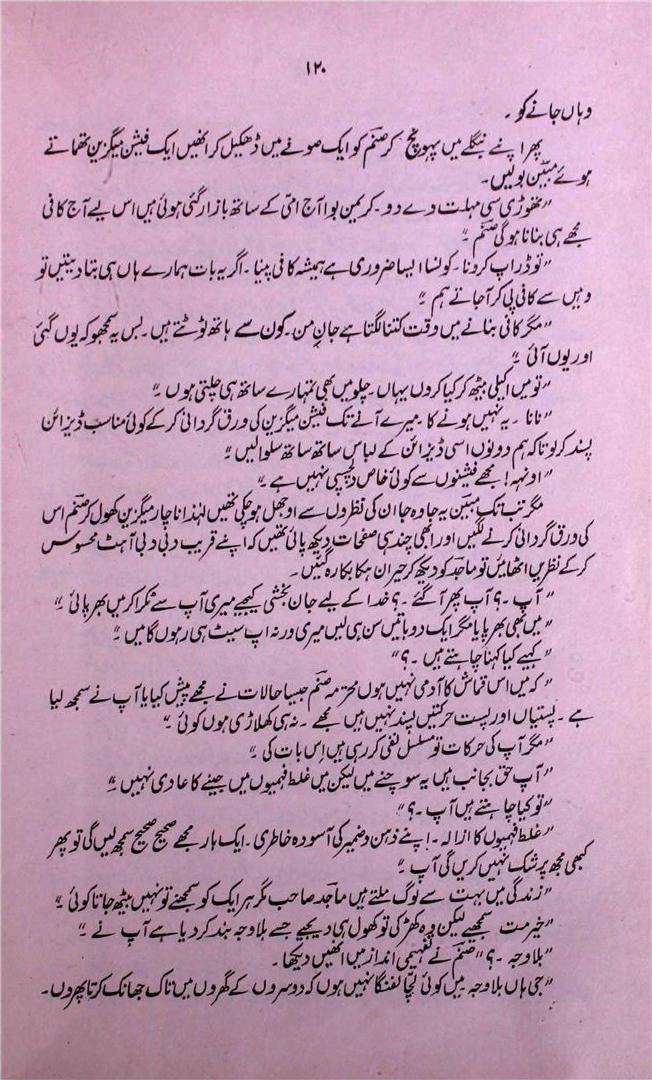 ۱۲۰
وہاں جانے کو ۔
پھر اپنے بنگلے میں پہونچ کر صنم کو ایک صوفے میں ڈھکیل کر انھیں ایک فیشن میگزین تھماتے
ہوئے مبین بولیں۔
”تھوڑی سی مہلت دے دو ۔ کریمن بوا آج امّی کے ساتھ بازار گئی ہوئی ہیں اس لیے آج کافی
مجھے ہی بنانا ہو گی صنم ۔“
”تو ڈراپ کر دونا ۔ کونسا ایسا ضروری ہے ہمیشہ کافی پینا ۔ اگر یہ بات ہمارے ہاں ہی بتا دیتیں تو
وہیں سے کافی پی کر آجاتے ہم ۔“
”مگر کافی بنانے میں وقت کتنا لگتا ہے جانِ من ۔ کون سے ہاتھ ٹوٹتے ہیں ۔ بس یہ سمجھو کہ یوں گئی
اور یوں آئی ۔“
”تو میں اکیلی بیٹھ کر کیا کروں یہاں ۔ چلو میں بھی تمہارے ساتھ ہی چلتی ہوں ۔“
”نانا ۔ یہ نہیں ہونے کا ۔ میرے آنے تک فیشن میگزین کی ورق گردانی کر کے کوئی مناسب ڈیزائن
پسند کر لو تاکہ ہم دونوں اسی ڈیزائن کے لباس ساتھ ساتھ سلوالیں ۔“
”اونہہ! مجھے فیشنوں سے کوئی خاص دلچسپی نہیں ہے ۔“
مگر تب تک مبین یہ جا وہ جا ان کی نظروں سے اوجھل ہو چکی تھیں لہٰذا ناچار میگزین کھول کر صنم اس
کی ورق گردانی کرنے لگیں اور ابھی چند ہی صفحات دیکھ پائی تھیں کہ اپنے قریب دبی دبی آہٹ محسوس
کر کے نظریں اٹھائیں تو ماجد کو دیکھ کر حیران ہکا بکا رہ گئیں ۔
”آپ ۔؟ آپ پھر آ گئے ۔؟ خدا کے لیے جان بخشی کیجیے میری آپ سے ٹکرا کر میں بھر پائی ۔“
”میں بھی بھر پایا مگر ایک دو باتیں سن ہی لیں میری ورنہ اپ سیٹ ہی رہوں گا میں ۔“
”کہیے کیا کہنا چاہتے ہیں ۔؟“
”کہ میں اس قماش کا آدمی نہیں ہوں محترمہ صنم جیسا حالات نے مجھے پیش کیا یا آپ نے سمجھ لیا
ہے ۔ پستیاں اور پست حرکتیں پسند نہیں ہیں مجھے ۔ نہ ہی کھلاڑی ہوں کوئی ۔“
”مگر آپ کی حرکات تو مسلسل نفی کر رہی ہیں اس بات کی ۔“
”آپ حق بجانب ہیں یہ سوچنے میں لیکن میں غلط فہمیوں میں جینے کا عادی نہیں ۔“
”تو کیا چاہتے ہیں آپ ۔؟“
”غلط فہمیوں کا ازالہ ۔ اپنے ذہن و ضمیر کی آسودہ خاطری ۔ ایک بار مجھے صحیح صحیح سمجھ لیں گی تو پھر
کبھی مجھ پر شک نہیں کریں گی آپ ۔“
”زندگی میں بہت سے لوگ ملتے ہیں ماجد صاحب مگر ہر ایک کو سمجھنے تو نہیں بیٹھ جاتا کوئی ۔“
”خیر مت سمجھیے لیکن وہ کھڑکی تو کھول ہی دیجیے جسے بلاوجہ بند کر دیا ہے آپ نے ۔“
”بلا وجہ ۔؟“ صنم نے تفہیمی انداز میں انھیں دیکھا ۔
”جی ہاں بلا وجہ میں کوئی لچّا لفنگا نہیں ہوں کہ دوسروں کے گھروں میں تاک جھانک کرتا پھروں ۔